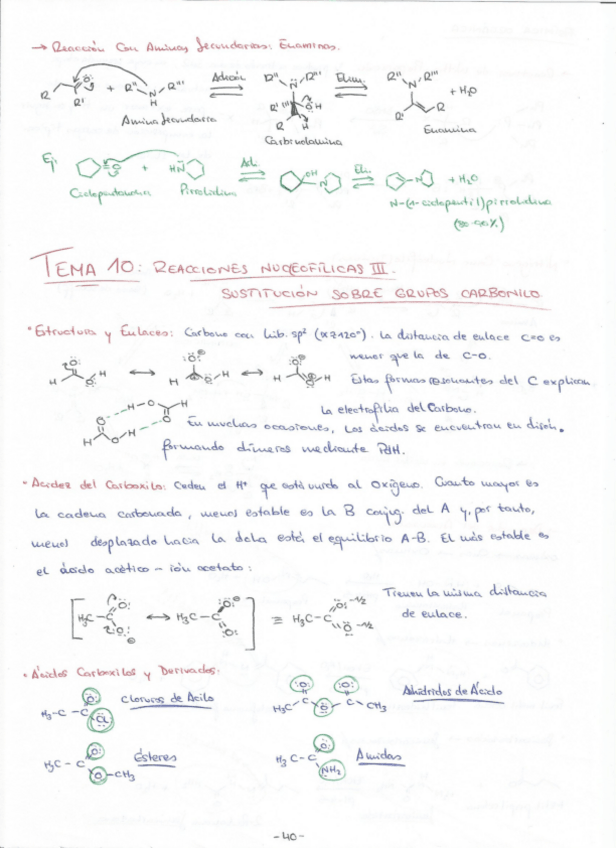 → Reacción Con Aminas Secundarias: Enaminas.
R R' O: + R'' N R''' H Adición R'' N R''' R''' OH R H Elim. R'' N R''' R' R + H2O
Amina Secundaria Carbinolamina Enamina
Ej: O + HN Adi. OH N Eli. N + H2O
Ciclopentanona Pirrolidina N-(1-ciclopentil)pirrolidina
(80-90%)
TEMA 10: REACCIONES NUCLEOFÍLICAS III.
SUSTITUCIÓN SOBRE GRUPOS CARBONILO
• Estructura y Enlaces: Carbono con hib. sp² (α≈120°). La distancia de enlace C=O es
menor que la de C-O.
Estas formas resonantes del C explican
la electrofilia del Carbono.
En muchas ocasiones, los ácidos se encuentran en disón.
formando dímeros mediante PdH.
• Acidez del Carboxilo: Ceden el H⁺ que está unido al Oxígeno. Cuanto mayor es
la cadena carbonada, menos estable es la B conjug. del A y, por tanto,
menos desplazado hacia la dcha está el equilibrio A-B. El más estable es
el ácido acético - ión acetato:
H3C-C O: O: ↔ H3C-C O: O: ≡ H3C-C O: -1/2 O: -1/2
Tienen la misma distancia
de enlace.
• Ácidos Carboxilos y Derivados:
H3-C - C O: Cl: Cloruros de Acilo
H3C - C O: O C O: CH3 Anhídridos de Ácido
H3C - C O: O-CH3 Ésteres
H3C - C O: NH2 Amidas
-40-